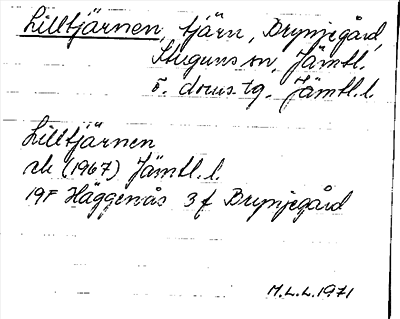 Lilltjärnen, tjärn, Brynjegård,
Stuguns sn, Jämtl.
ö. doms tg. Jämtl. l.
Lilltjärnen
ek (1967) Jämtl. l.
19F Häggenås 3 f Brynjegård
M.L.L. 1971